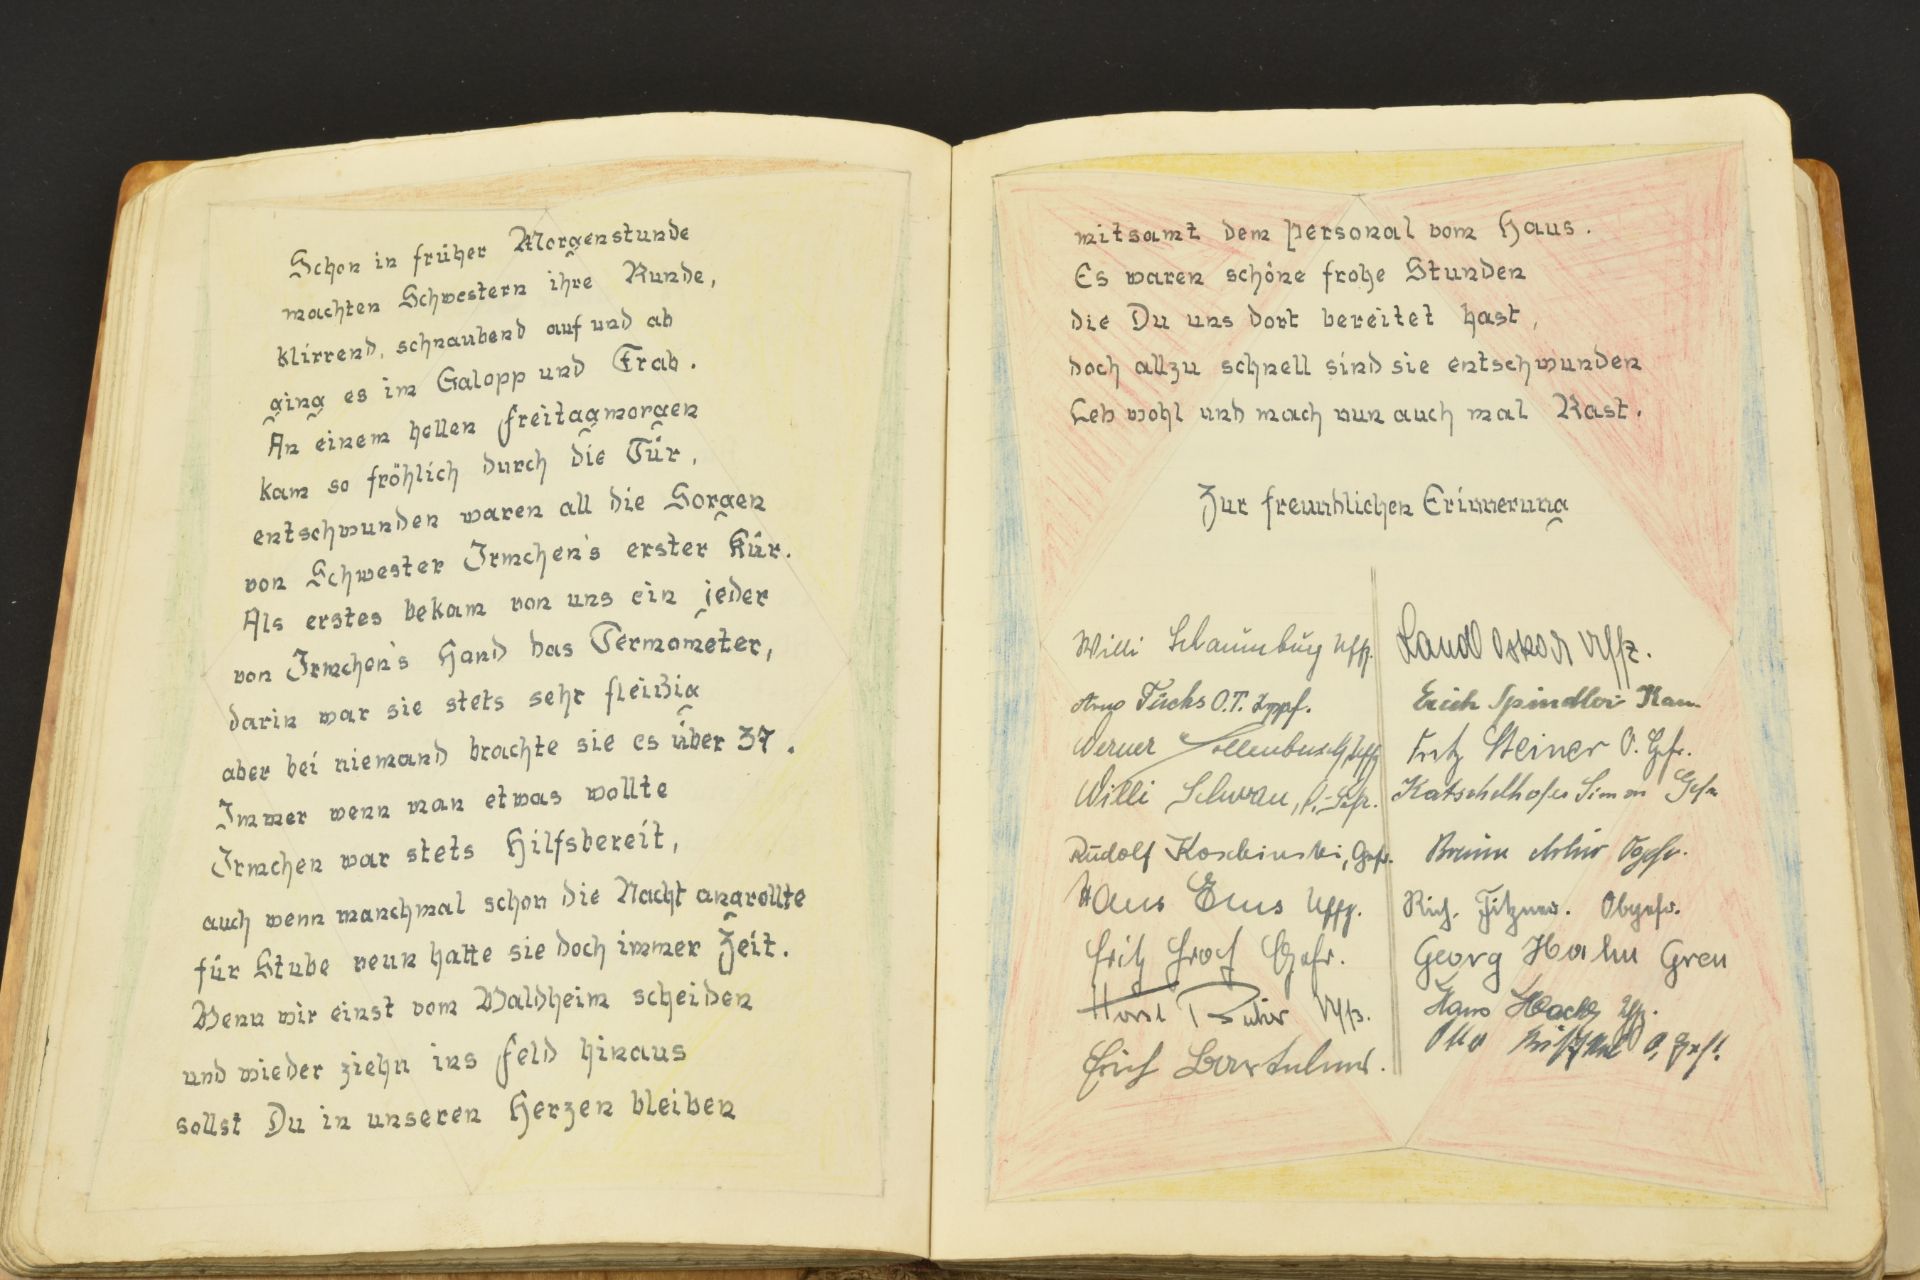 Schon in früher Morgenstunde
machten Schwestern ihre Runde,
klirrend, schnaubend auf und ab
ging es im Galopp und Trab.
An einem hellen Freitagmorgen
kam so fröhlich durch die Tür,
entschwunden waren all die Sorgen
von Schwester Irmchen's erster Kür.
Als erstes bekam von uns ein jeder
von Irmchen's Hand das Termometer,
darin war sie stets sehr fleißig
aber bei niemand brachte sie es über 37.
Immer wenn man etwas wollte
Irmchen war stets Hilfsbereit,
auch wenn manchmal schon die Nacht angrollte
für Stube neun hatte sie doch immer Zeit.
Wenn wir einst vom Waldheim scheiden
und wieder ziehn ins Feld hinaus
sollst Du in unseren Herzen bleiben
mitsamt dem Personal vom Haus.
Es waren schöne frohe Stunden
die Du uns dort bereitet hast,
doch allzu schnell sind sie entschwunden
Leb wohl und mach nun auch mal Rast.
Zur freundlichen Erinnerung
Willi Schaumburg Uffz.
Arno Fuchs O.T.
Werner
Willi Schwan, O.-Gefr.
Rudolf Koschinski, Gefr.
Hans Emus Uffz.
Fritz Grof Gefr.
Horst Uffz.
Erich
Landl Oskar Uffz.
Erich Spindler Kan.
Fritz Steiner O. Gfr.
Katschelhofer Simon Gefr.
Braun Artur Ogefr.
Rich. Fitzner. Obgefr.
Georg Hahn Gren
Hans
Otto O. Gefr.